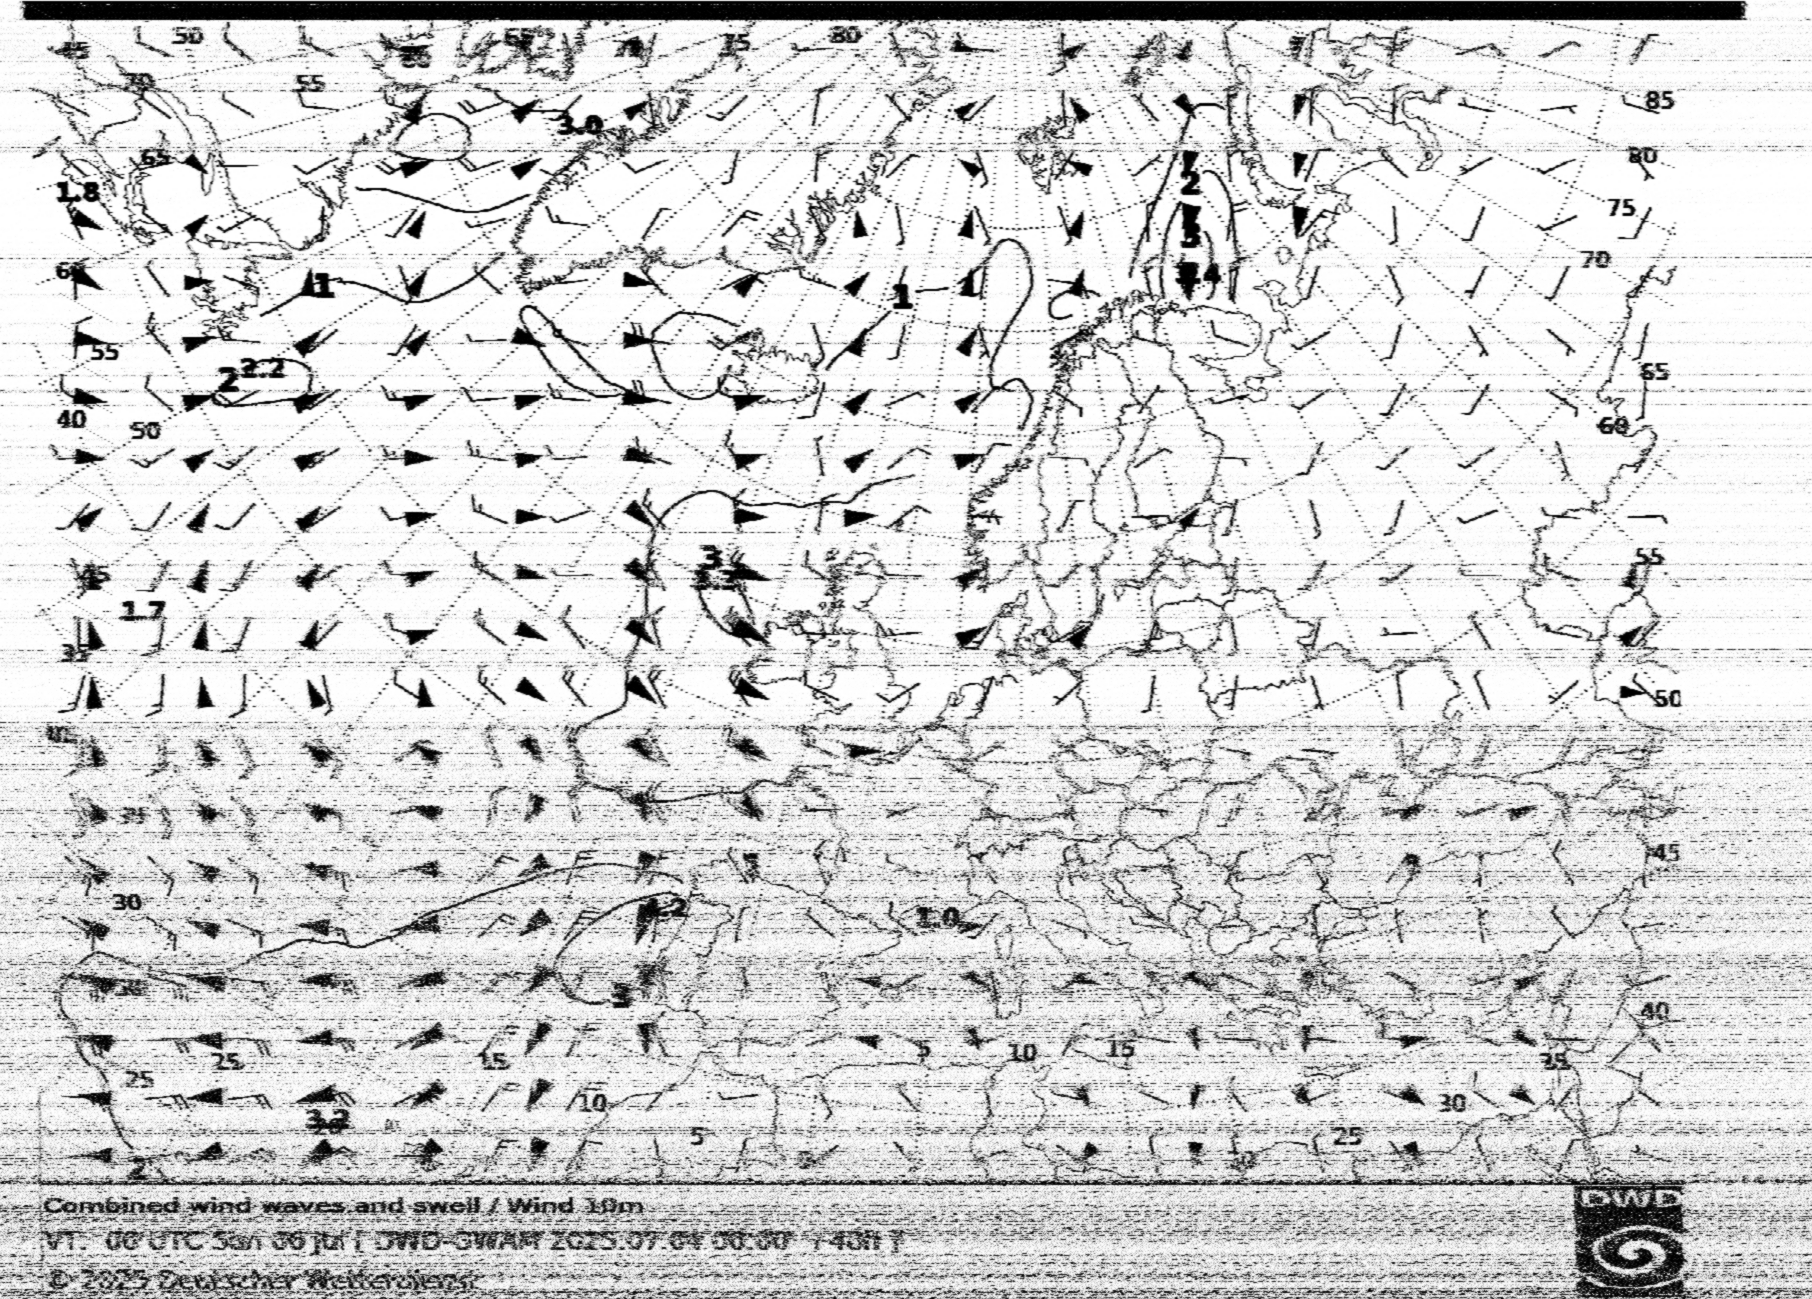 45 50 55 60 65 70 75 80
70 55
3.0
85
65
80
1.8
2
75
3
60
70
1
2.4
1
55
2 2.2
65
40
50
60
3
45
55
1.7
35
50
35
45
30
4.2
1.0
30
3
40
25
15
5
10
15
35
25
10
30
3.2
5
25
2
Combined wind waves and swell / Wind 10m
VT: 00 UTC Sun 06 Jul [ DWD-GWAM 2025.07.04 00:00 +48h ]
© 2025 Deutscher Wetterdienst
DWD